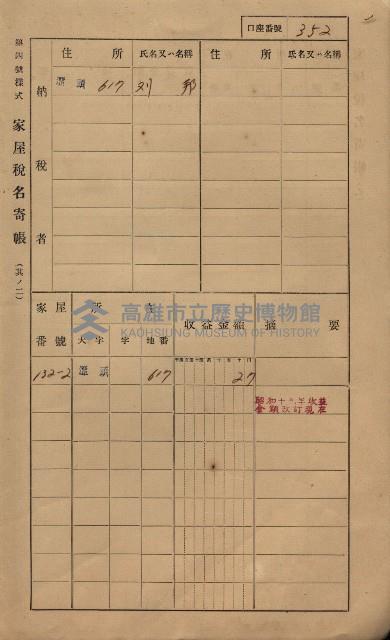 口座番號 352
第四號樣式
家屋稅名寄帳
(其ノ二)
納稅者
住所 氏名又ハ名稱 住所 氏名又ハ名稱
潭頭 617 刘
家屋番號 所在 大字 字 地番 收益金額 摘要
132-2 潭頭 617 27
昭和十八年收益
金額改訂現在
高雄市立歷史博物館
KAOHSIUNG MUSEUM OF HISTORY